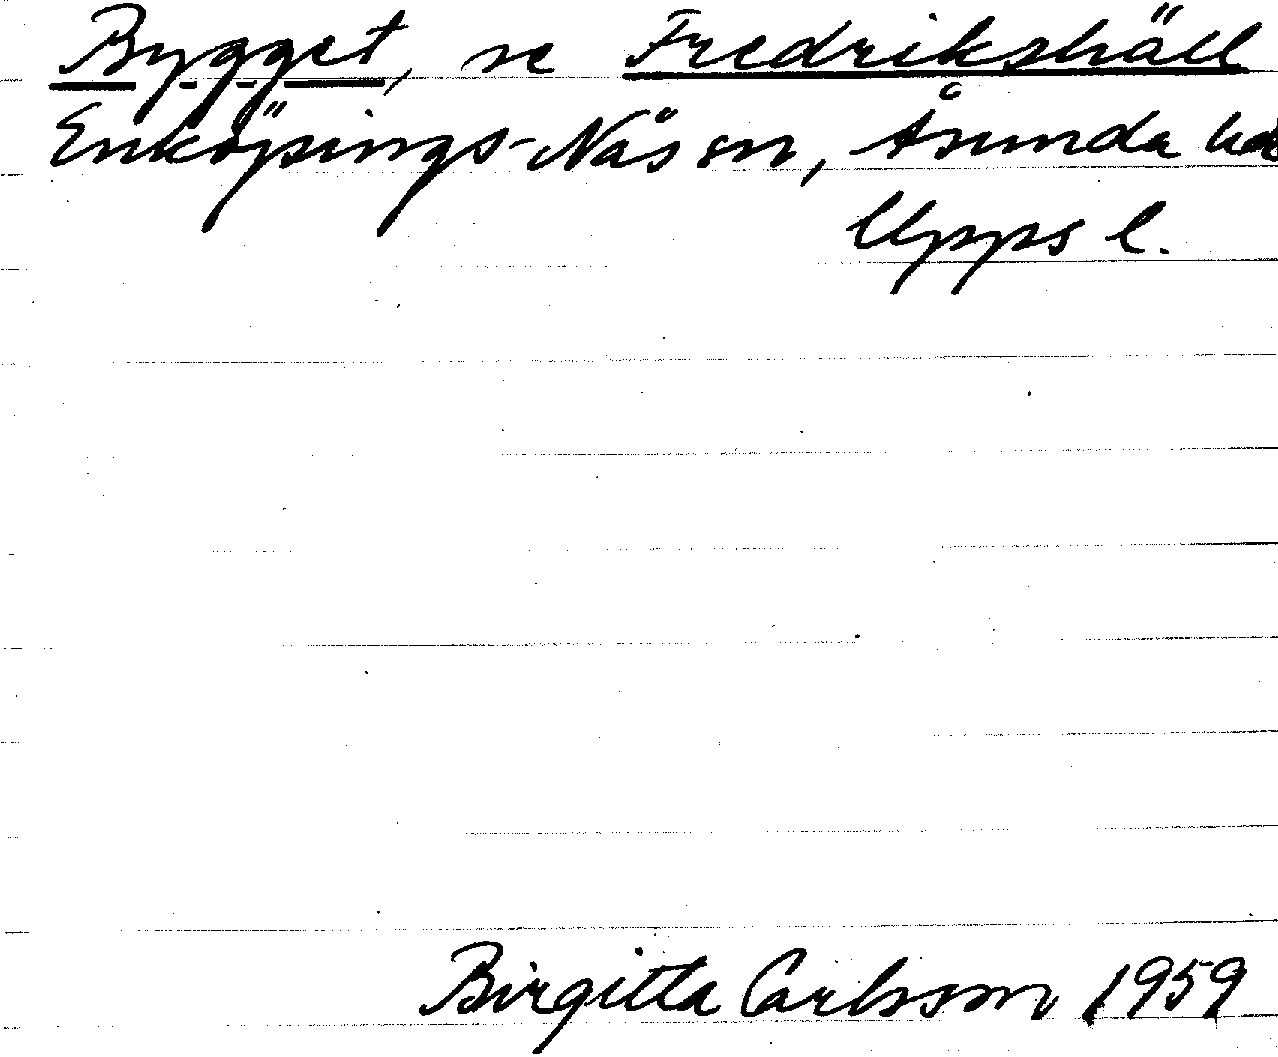 Bygget, se Fredrikshäll
Enköpings-Näs sn, Åsunda hd
Upps l.
Birgitta Carlsson 1959